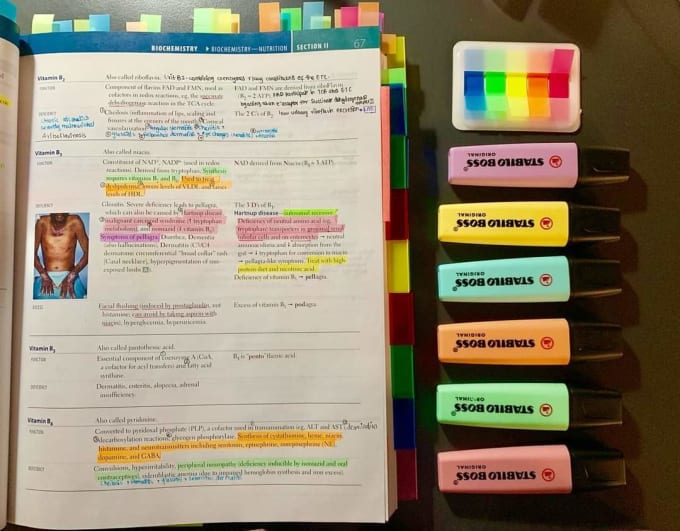 BIOCHEMISTRY ▶ BIOCHEMISTRY—NUTRITION SECTION II 67
Vitamin B2
Also called riboflavin.
FUNCTION
Component of flavins FAD and FMN, used as
cofactors in redox reactions, eg, the succinate
dehydrogenase reaction in the TCA cycle.
FAD and FMN are derived from riboFlavin
(B2 = 2 ATP).
DEFICIENCY
Cheilosis (inflammation of lips, scaling and
fissures at the corners of the mouth), Corneal
vascularization.
The 2 C's of B2.
Vitamin B3
Also called niacin.
FUNCTION
Constituent of NAD+, NADP+ (used in redox
reactions). Derived from tryptophan. Synthesis
requires vitamins B2 and B6. Used to treat
dyslipidemia; lowers levels of VLDL and raises
levels of HDL.
NAD derived from Niacin (B3 = 3 ATP).
DEFICIENCY
Glossitis. Severe deficiency leads to pellagra,
which can also be caused by Hartnup disease,
malignant carcinoid syndrome (↑ tryptophan
metabolism), and isoniazid (↓ vitamin B6).
Symptoms of pellagra: Diarrhea, Dementia
(also hallucinations), Dermatitis (C3/C4
dermatome circumferential "broad collar" rash
[Casal necklace], hyperpigmentation of sun-
exposed limbs
The 3 D's of B3.
Hartnup disease—autosomal recessive.
Deficiency of neutral amino acid (eg,
tryptophan) transporters in proximal renal
tubular cells and on enterocytes → neutral
aminoaciduria and ↓ absorption from the
gut → ↓ tryptophan for conversion to niacin
→ pellagra-like symptoms. Treat with high-
protein diet and nicotinic acid.
Deficiency of vitamin B3 → pellagra.
EXCESS
Facial flushing (induced by prostaglandin, not
histamine; can avoid by taking aspirin with
niacin), hyperglycemia, hyperuricemia.
Excess of vitamin B3 → podagra.
Vitamin B5
Also called pantothenic acid.
FUNCTION
Essential component of coenzyme A (CoA,
a cofactor for acyl transfers) and fatty acid
synthase.
B5 is "pento"thenic acid.
DEFICIENCY
Dermatitis, enteritis, alopecia, adrenal
insufficiency.
Vitamin B6
Also called pyridoxine.
FUNCTION
Converted to pyridoxal phosphate (PLP), a cofactor used in transamination (eg, ALT and AST),
decarboxylation reactions, glycogen phosphorylase. Synthesis of cystathionine, heme, niacin,
histamine, and neurotransmitters including serotonin, epinephrine, norepinephrine (NE),
dopamine, and GABA.
DEFICIENCY
Convulsions, hyperirritability, peripheral neuropathy (deficiency inducible by isoniazid and oral
contraceptives), sideroblastic anemia (due to impaired hemoglobin synthesis and iron excess).
STABILO BOSS
ORIGINAL
STABILO BOSS
ORIGINAL
STABILO BOSS
ORIGINAL
STABILO BOSS
ORIGINAL
STABILO BOSS
ORIGINAL
STABILO BOSS
ORIGINAL